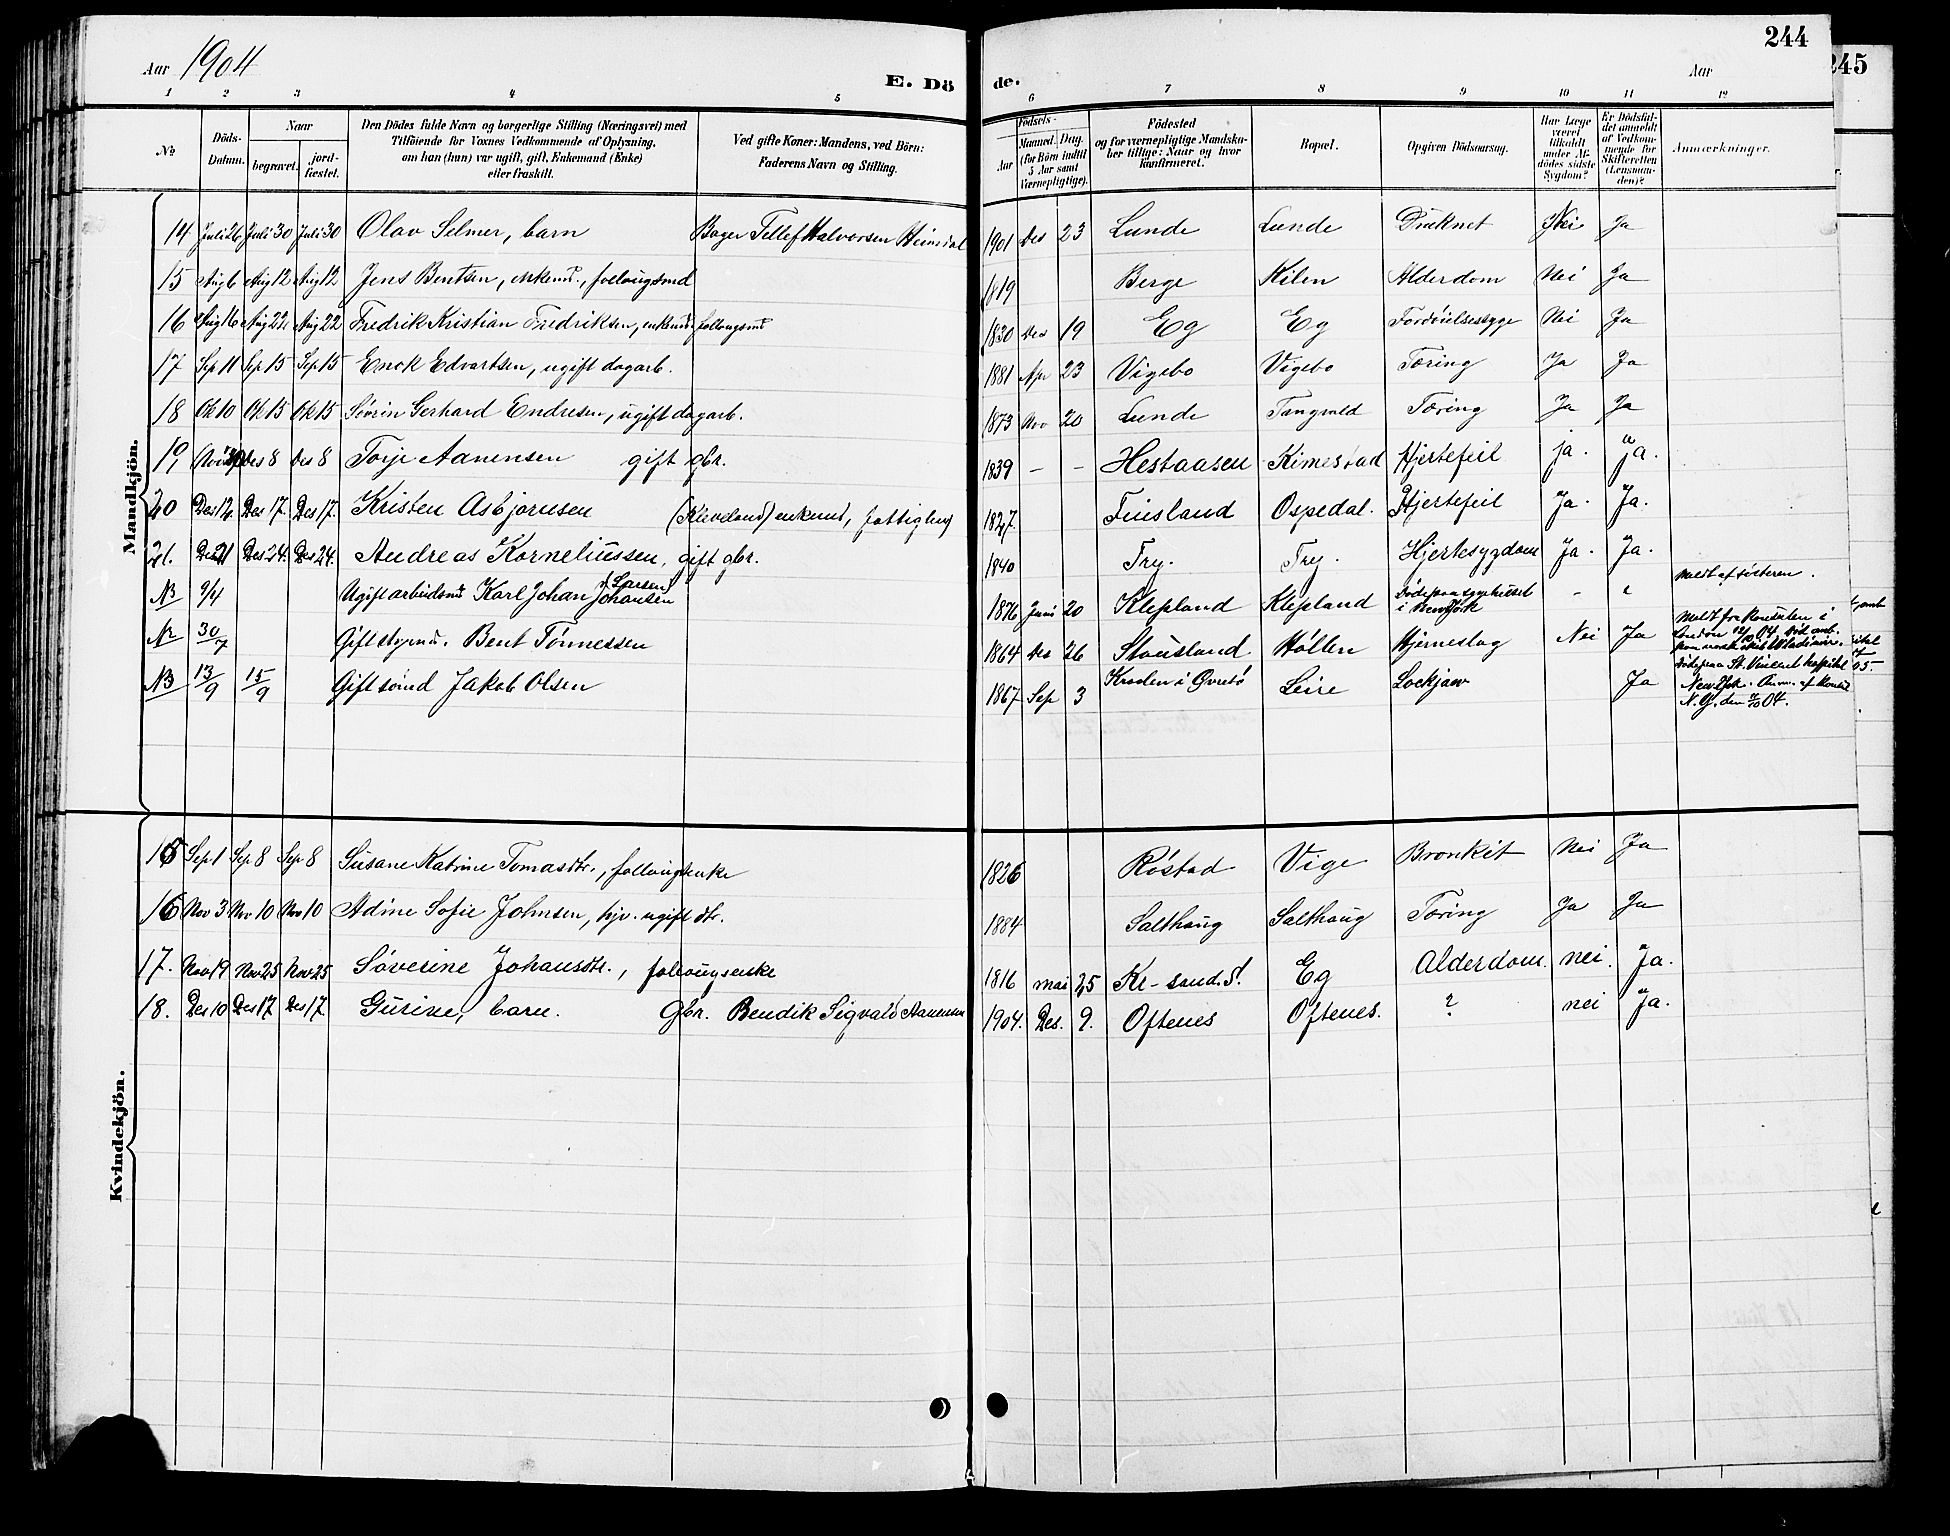 244
245
Aar 1904
E. Dö
de.
Aar
1 2 3 4 5 6 7 8 9 10 11 12
No
Döds-Datum.
Naar
begravet.
jordfæstet.
Den Dödes fulde Navn og borgerlige Stilling (Næringsvei) med
Tilföiende for Voxnes Vedkommende af Oplysning,
om han (hun) var ugift, gift, Enkemand (Enke)
eller fraskilt.
Ved gifte Koner: Mandens, ved Börn:
Faderens Navn og Stilling.
Födsels-
Aar
Maaned.
Dag.
(for Börn indtil
5 Aar samt
Værnepligtige).
Födested
og for værnepligtige Mandskaber tillige: Naar og hvor
konfirmeret.
Bopæl.
Opgiven Dödsaarsag.
Har Læge
været
tilkaldt
under Afdödes sidste
Sygdom?
Er Dödsfaldet anmeldt
af Vedkommende for
Skifteretten
(Lensmanden)?
Anmærkninger.
Mandkjön.
14 Juli 26 Juli 30 Juli 30 Olav Selmer, barn Bager Tellef Halvorsen Heimdal 1901 Des 23 Lunde Lunde Druknet Nei Ja
15 Aug 6 Aug 12 Aug 12 Jens Bentsen, enkemd., follougsmd 1819 Berge Kilen Alderdom Nei Ja
16 Aug 16 Aug 22 Aug 22 Fredrik Kristian Fredriksen, enkemd. follougsmd 1830 Des 19 Eg Eg Fordøielsessyge Nei Ja
17 Sep 11 Sep 15 Sep 15 Enok Edvartsen, ugift dagarb. 1881 Apr 23 Vigebo Vigebo Tæring Ja Ja
18 Ok 10 Ok 15 Ok 15 Sørin Gerhard Endresen, ugift dagarb. 1873 Nov 20 Lunde Tangvald Tæring Ja Ja
19 Des 8 Des 8 Torje Aanensen gift gbr. 1839 - - Hestaasen Kimestad Hjertefeil ja. Ja.
20 Des 12. Des 17. Des 17. Kristen Asbjørnsen (Kleveland) enkemd, fattiglem 1827. Finsland Ospedal. Hjertefeil Ja. Ja.
21. Des 21 Des 24. Des 24. Andreas Korneliussen, gift gbr. 1840 Try. Try. Hjertesygdom Ja. Ja.
NB 9/4 Ugift arbeidsmd Karl Johan Johansen 1876 Juni 20 Klepland Klepland Døde paa sygehuset i New York - Meldt af søsteren.
NB 30/7 Gift styrmd. Bent Tønnessen 1864 Des 26 Stausland Høllen Hjerneslag Nei Ja Meldt fra Konsulen i
London 12/10 04. Død omb.
paa norsk skib Wladimir.
NB 13/9 15/9 Gift sømd Jakob Olsen 1867 Sep 3 Kroden i Øvrebø Leire Lockjaw Ja Døde paa St. Vincent hospital
New York. Anm. af Konsul
N. Y. den 04.
Kvindekjön.
15 Sep 1 Sep 8 Sep 8 Susane Katrine Tomasdtr., follougsenke 1826 Røstad Vige Bronkit Nei Ja
16 Nov 3 Nov 10 Nov 10 Adine Sofie Johnsen, hjv. ugift dtr. 1884 Salthaug Salthaug Tæring Ja Ja
17. Nov 19 Nov 25 Nov 25 Søverine Johansdtr., follougsenke 1816 mai 25 Kr-sand. S. Eg Alderdom. nei. Ja.
18. Des 10 Des 17 Des 17 Gurine, barn. Gbr. Bendik Sigvald Aanensen 1904. Des. 9. Oftenes Oftenes. ? nei Ja.